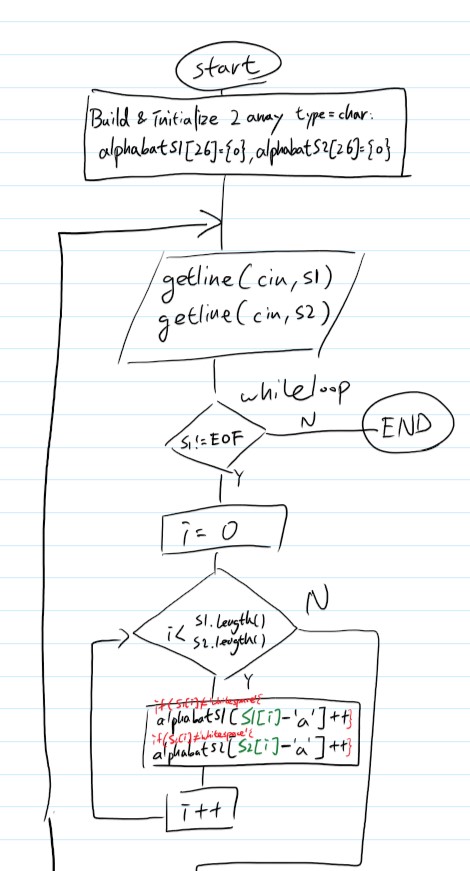 start
Build & Initialize 2 array type=char:
alphabatS1[26]={0}, alphabatS2[26]={0}
getline(cin, S1)
getline(cin, S2)
whileloop
S1!=EOF
N
END
Y
i = 0
i< S1.length()
S2.length()
N
Y
if(S1[i]≠Whitespace){
alphabatS1[S1[i]-'a']++}
if(S2[i]≠Whitespace){
alphabatS2[S2[i]-'a']++}
i++